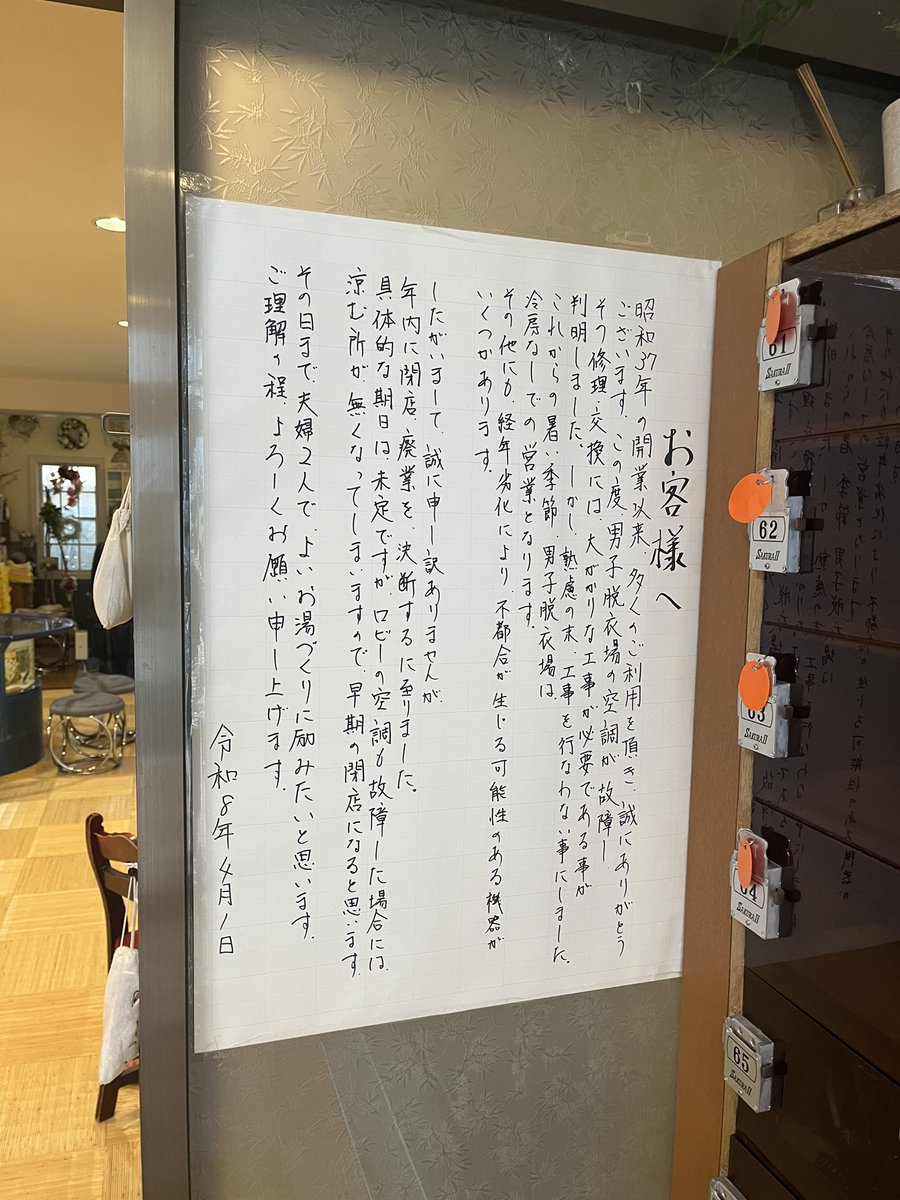 お客様へ
昭和37年の開業以来、多くのご利用を頂き、誠にありがとう
ございます。この度、男子脱衣場の空調が故障し
その修理、交換には、大がかりな工事が必要である事が
判明しました。しかし、熟慮の末、工事を行なわない事にしました。
これからの暑い季節、男子脱衣場は、
冷房なしでの営業となります。
その他にも、経年劣化により、不都合が生じる可能性のある機器が
いくつかあります。
したがいまして、誠に申し訳ありませんが、
年内に閉店、廃業を、決断するに至りました。
具体的な期日は、未定ですが、ロビーの空調も故障した場合には、
涼む所が無くなってしまいますので、早期の閉店になると思います。
その日まで、夫婦2人で、よいお湯づくりに励みたいと思います。
ご理解の程、よろしくお願い申し上げます。
令和8年4月1日
61
SAKURA II
62
SAKURA II
63
SAKURA II
64
SAKURA II
65
SAKURA II